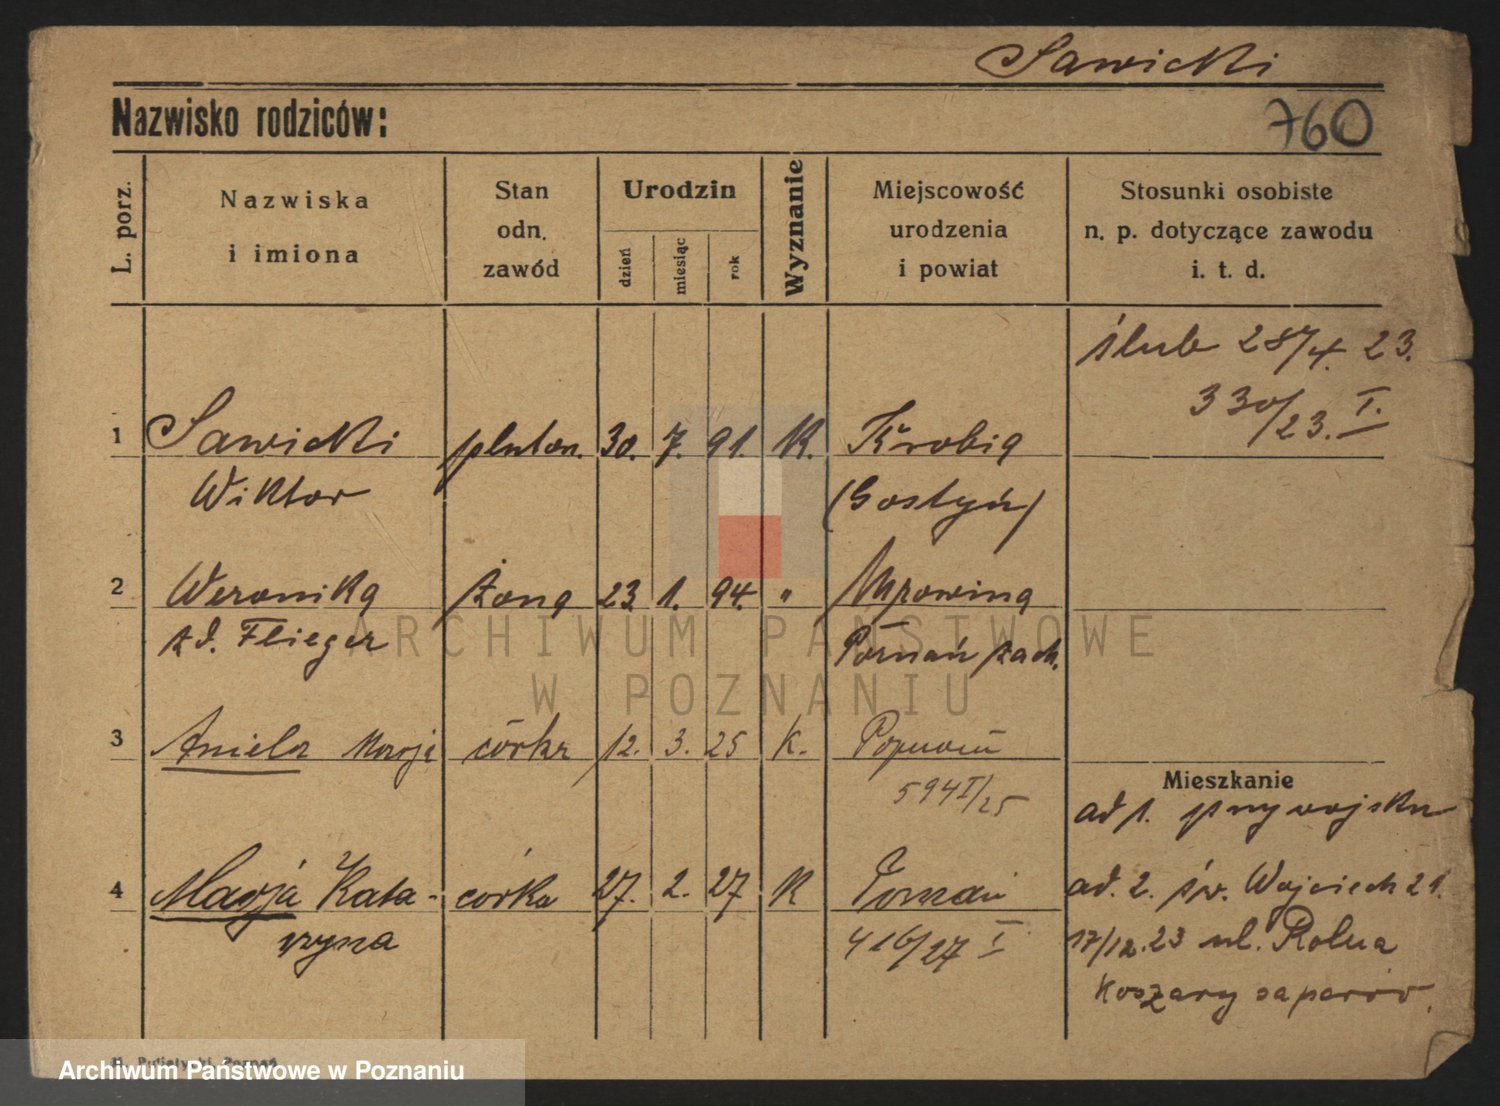 Sawicki
Nazwisko rodziców:
760
L. porz.
Nazwiska
i imiona
Stan
odn.
zawód
Urodzin
dzień
miesiąc
rok
Wyznanie
Miejscowość
urodzenia
i powiat
Stosunki osobiste
n. p. dotyczące zawodu
i. t. d.
ślub 28/4. 23.
330/23. I.
1 Sawicki pluton. 30. 7. 91. K. Krobia
Wiktor (Gostyń)
2 Weronika żona 23. 1. 94. " Mrowina
zd. Flieger Poznań zach.
3 Aniela Marja córka 12. 3. 25 K. Poznań
594 I/25
Mieszkanie
ad 1. przy wojsku
4 Marja Kata- córka 27. 2. 27 K Poznań
rzyna 416/27 I
ad. 2. św. Wojciech 21.
17/12.23 ul. Rolna
Koszary saperów.
ARCHIWUM PAŃSTWOWE
W POZNANIU
Poznań
Archiwum Państwowe w Poznaniu